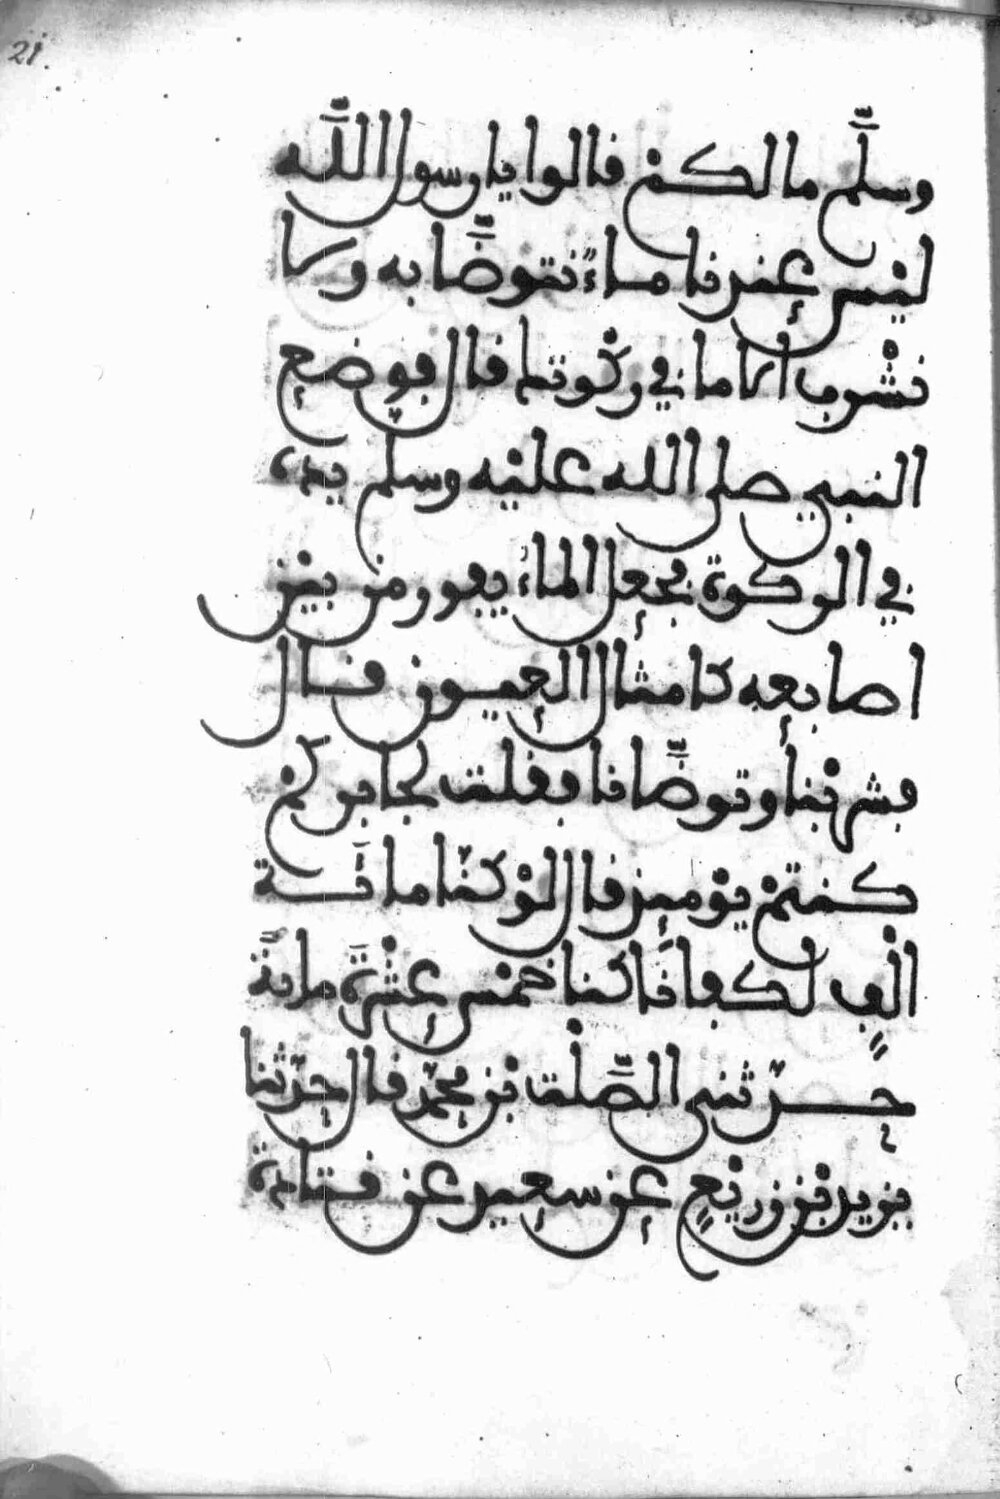 21.
وسلَّم ما لكم قالوا يا رسول اللَّه
ليس عندنا ماء نتوضَّا به ولا
نشرب الا ما في ركوتك قال فوضع
النبي صلى الله عليه وسلم يده
في الركوة فجعل الماء يفور من بين
اصابعه كامثال العيون قال
فشربنا وتوضَّانا فقلت لجابر كم
كنتم يومئذ قال لو كنا مائة
الف لكفانا كنا خمس عشرة مائة
حدثني الصَّلت بن محمد قال حدثنا
يزيد بن زريع عن سعيد عن قتادة